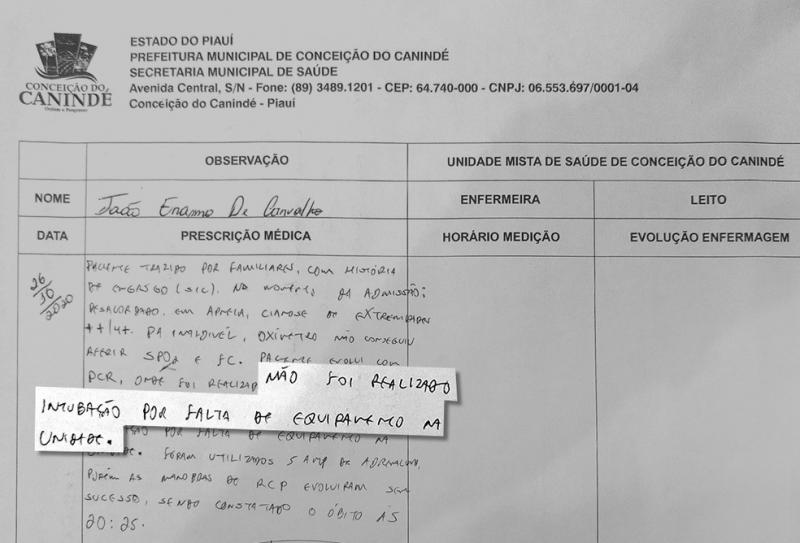 CONCEIÇÃO DO
CANINDÉ
ESTADO DO PIAUÍ
PREFEITURA MUNICIPAL DE CONCEIÇÃO DO CANINDÉ
SECRETARIA MUNICIPAL DE SAÚDE
Avenida Central, S/N - Fone: (89) 3489.1201 - CEP: 64.740-000 - CNPJ: 06.553.697/0001-04
Conceição do Canindé - Piauí
OBSERVAÇÃO
UNIDADE MISTA DE SAÚDE DE CONCEIÇÃO DO CANINDÉ
NOME
João De Carvalho
ENFERMEIRA
LEITO
DATA
PRESCRIÇÃO MÉDICA
HORÁRIO MEDIÇÃO
EVOLUÇÃO ENFERMAGEM
26/10/2020
PACIENTE TRAZIDO POR FAMILIARES, COM HISTÓRIA
DE (SIC). NO MOMENTO DA ADMISSÃO:
DESACORDADO, EM APNEIA, CIANOSE DE EXTREMIDADES
++/4+. PA INAUDIVEL, OXÍMETRO NÃO CONSEGUIU
AFERIR SPO2 E FC. PACIENTE EVOLUI COM
PCR, ONDE FOI REALIZAD
NÃO FOI REALIZADO
INTUBAÇÃO POR FALTA DE EQUIPAMENTO NA
UNIDADE.
POR FALTA DE EQUIPAMENTO NA
FORAM UTILIZADOS 5 AMP DE ADRENALINA,
PORÉM AS MANOBRAS DE RCP EVOLUIRAM SEM
SUCESSO, SENDO CONSTATADO O ÓBITO ÀS
20:25.